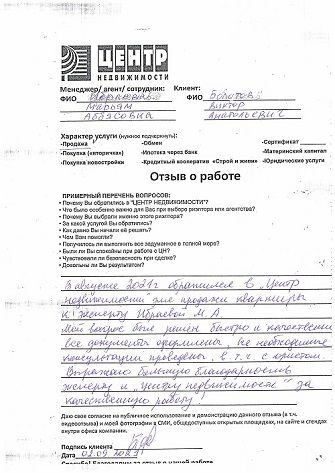 ЦЕНТР
НЕДВИЖИМОСТИ
Менеджер/ агент/ сотрудник: Клиент:
ФИО ФИО Болотов
Марьям Виктор
Аббасовна Анатольевич
Характер услуги (нужное подчеркнуть):
-Продажа -Обмен -Сертификат
-Покупка (вторичка) -Ипотека через банк -Материнский капитал
-Покупка новостройки -Кредитный кооператив «Строй и живи» -Юридические услуги
Отзыв о работе
ПРИМЕРНЫЙ ПЕРЕЧЕНЬ ВОПРОСОВ:
• Почему Вы обратились в "ЦЕНТР НЕДВИЖИМОСТИ"?
• Что было особенно важно для Вас при выборе риэлтора или агентства?
• Почему Вы выбрали именно этого риэлтора?
• За какой услугой Вы обратились?
• Как давно Вы начали её решать?
• Чем Вам помогли?
• Получилось ли выполнить все задуманное в полной мере?
• Были ли Вы спокойны при работе с ЦН?
• Чувствовали ли безопасность при сделке?
• Довольны ли Вы результатом?
В августе 2021г обратился в „Центр
недвижимости для продажи квартиры
к эксперту Ибраевой М.А
Мой вопрос был решен быстро и качественно
все документы оформлены, все необходимые
консультации проведены, в т.ч. с юристом.
Выражаю большую благодарность
эксперту и „Центру недвижимости" за
качественную работу!
Даю свое согласие на публичное использование и демонстрацию данного отзыва (в т.ч.
видеоотзыва) и моей фотографии в СМИ, общедоступных открытых площадках, на сайте и стендах
внутри офиса компании.
Подпись клиента
Дата 02.09.2021
Спасибо! Благодарим за отзыв о нашей работе